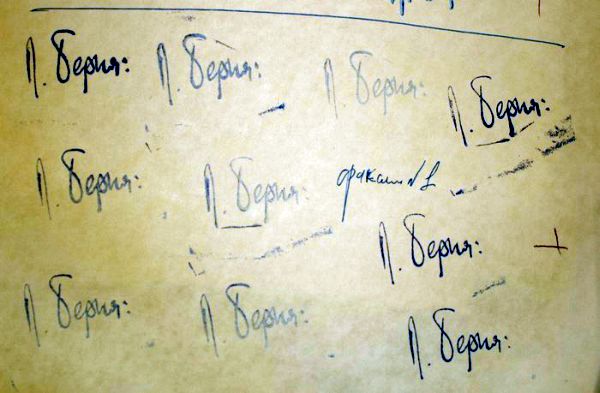 Л. Берия: Л. Берия: Л. Берия: Л. Берия:
Л. Берия: Л. Берия: факсим N 1
Л. Берия:
Л. Берия: Л. Берия: Л. Берия: